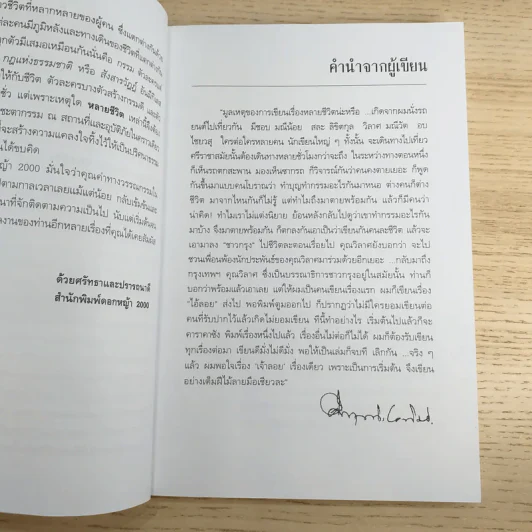 วชีวิตที่หลากหลายของผู้คน ซึ่งแตกต่างกันด้วย
ต่ละคนมีภูมิหลังและทางเดินของชีวิตที่แตกต่างกัน
ทุกตัวมีเสมอเหมือนกันนั่นคือ กรรม ตัวละคร
กฎแห่งธรรมชาติ หรือ สังสารวัฏฏ์
ให้กับชีวิต ตัวละครบางตัวสร้างกรรมดี
ชั่ว แต่เพราะเหตุใด หลายชีวิต เหล่านี้ถึง
ชะตากรรม ณ สถานที่และอุบัติภัยในคราวเดียว
ที่จะสร้างความแคลงใจทิ้งไว้ให้เป็นปริศนาธรรม
ได้ขบคิด
หญ้า 2000 มั่นใจว่าคุณค่าทางวรรณกรรมใน
ไปตามกาลเวลาเลยแม้แต่น้อย กลับเข้มข้นและ
นาที่จักติดตามความเป็นไป นับแต่เริ่มต้นจน
งานของท่านอีกหลายเรื่องที่คุณได้เคยสัมผัส
ด้วยศรัทธาและปรารถนาดี
สำนักพิมพ์ดอกหญ้า 2000
คำนำจากผู้เขียน
"มูลเหตุของการเขียนเรื่องหลายชีวิตน่ะหรือ ...เกิดจากผมนั่งรถ
ยนต์ไปเที่ยวกัน มีชอบ มณีน้อย สละ ลิขิตกุล วิลาศ มณีวัต อบ
ไชยวสุ ใครต่อใครหลายคน นักเขียนใหญ่ ๆ ทั้งนั้น จะเดินทางไปเที่ยว
ศรีราชาสมัยนั้นต้องเดินทางหลายชั่วโมงกว่าจะถึง ในระหว่างทางตอนหนึ่ง
ก็เห็นรถตกสะพาน มองเห็นซากรถ ก็วิจารณ์กันว่าคนคงตายเยอะ ก็พูด
กันขึ้นมาแบบคนโบราณว่า ทำบุญทำกรรมอะไรกันมาหนอ ต่างคนก็ต่าง
ชีวิต มาจากไหนกันก็ไม่รู้ แต่ทำไมถึงมาตายพร้อมกัน แล้วก็มีคนว่า
น่าคิด! ทำไมเราไม่แต่งนิยาย ย้อนหลังกลับไปดูว่าเขาทำกรรมอะไรกัน
มาบ้าง จึงมาตายพร้อมกัน ก็ตกลงกันเอาเป็นว่าเขียนกันคนละชีวิต แล้วจะ
เอามาลง "ชาวกรุง" ไปชีวิตละตอนเรื่อยไป คุณวิลาศยังบอกว่า จะไป
ชวนเพื่อนพ้องนักประพันธ์ของคุณวิลาศมาร่วมด้วยอีกเยอะ ...กลับมาถึง
กรุงเทพฯ คุณวิลาศ ซึ่งเป็นบรรณาธิการชาวกรุงอยู่ในสมัยนั้น ท่านก็
บอกว่าพร้อมแล้วเอาเลย แต่ให้ผมเป็นคนเขียนเรื่องแรก ผมก็เขียนเรื่อง
"ไอ้ลอย" ส่งไป พอพิมพ์ตูมออกไป ก็ปรากฏว่าไม่มีใครยอมเขียนต่อ
คนที่รับปากไว้แล้วเกิดไม่ยอมเขียน ทีนี้ทำอย่างไร เริ่มต้นไปแล้วก็จะ
คาราคาซัง พิมพ์เรื่องหนึ่งไปแล้ว เรื่องอื่นไม่ต่อก็ไม่ได้ ผมก็ต้องรับเขียน
ทุกเรื่องต่อมา เขียนดีมั่งไม่ดีมั่ง พอให้เป็นเล่มก็จบที เลิกกัน ...จริง ๆ
แล้ว ผมพอใจเรื่อง 'เจ้าลอย' เรื่องเดียว เพราะเป็นการเริ่มต้น จึงเขียน
อย่างเต็มฝีไม้ลายมือเชียวละ"